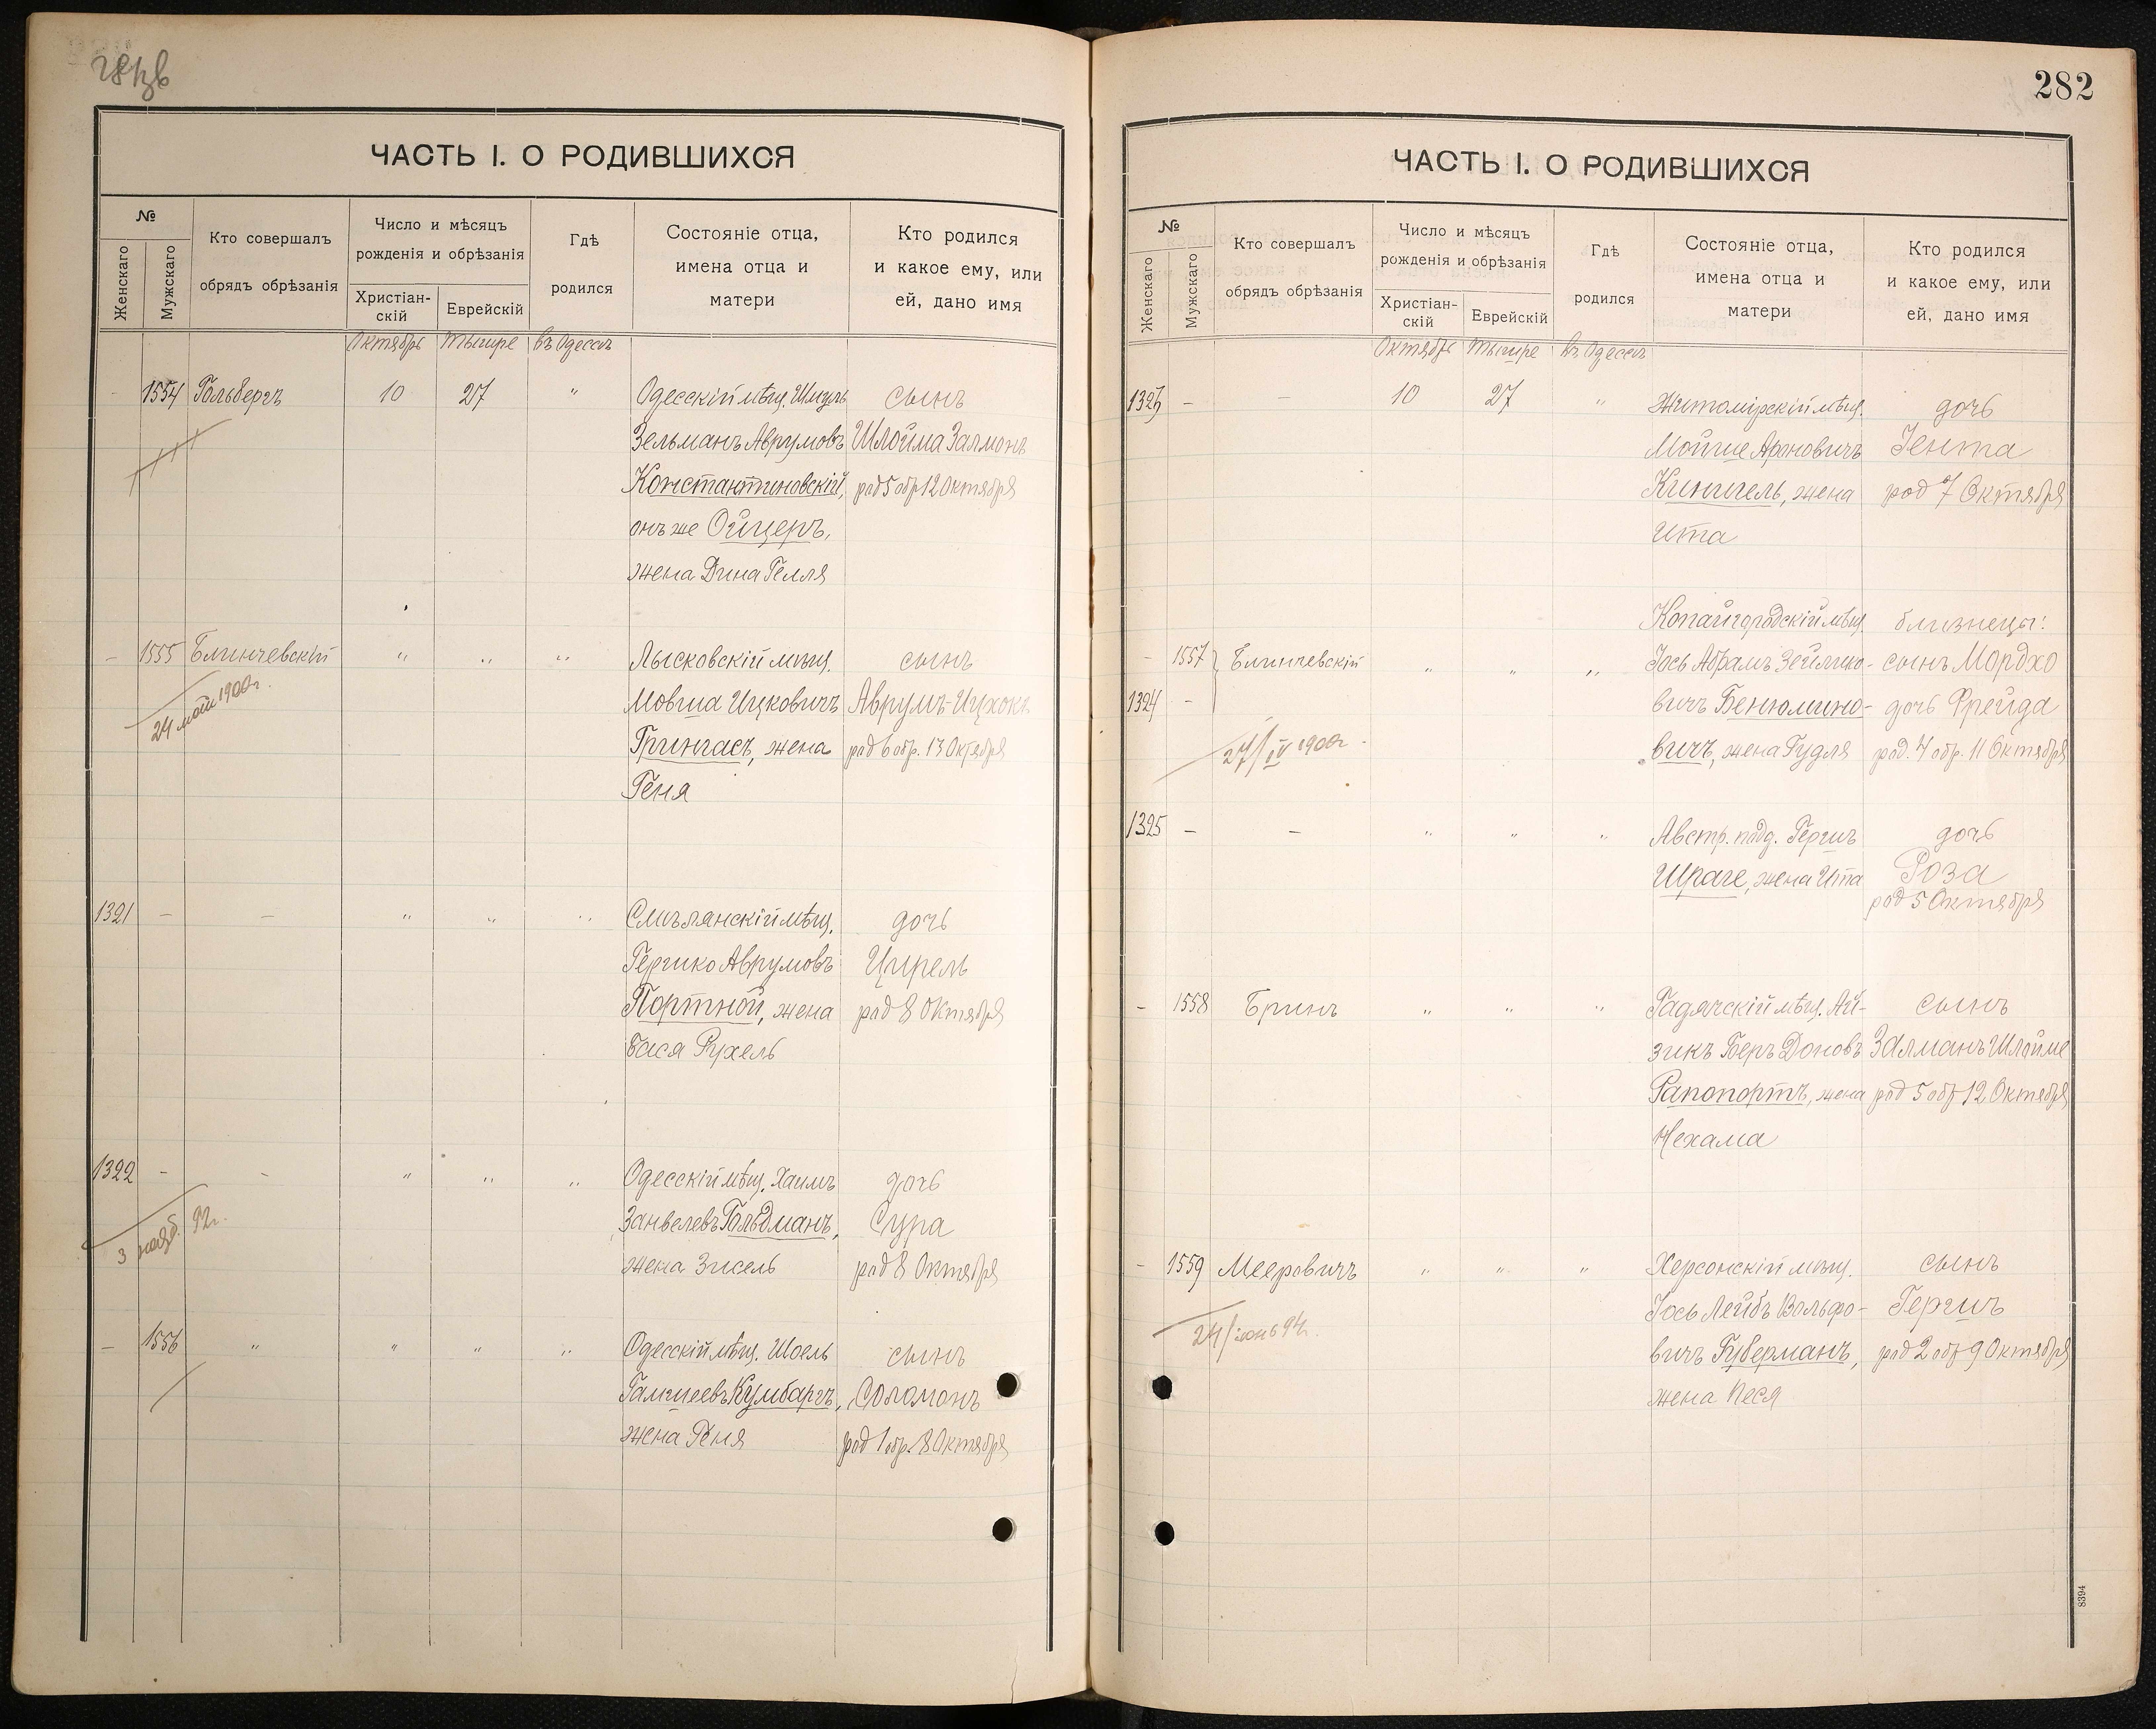 ЧАСТЬ I. О РОДИВШИХСЯ
№
Женскаго
Мужскаго
Кто совершалъ
обрядъ обрѣзанія
Число и мѣсяцъ
рожденія и обрѣзанія
Христіан-
скій
Еврейскій
Гдѣ
родился
Состояніе отца,
имена отца и
матери
Кто родился
и какое ему, или
ей, дано имя
Октябрь Тышре въ Одессѣ
1554 Гольбергъ 10 27 " Одесскій мѣщ. Шмуль сынъ
Зельманъ Аврумовъ Шлойма Залмонъ
Константиновскій, род 5 обр 12 Октября
онъ же Ойцеръ,
жена Дина Гелля
- 1555 Блинчевскій " " " Лысковскій мѣщ. сынъ
24 мая 1900г.
Мовша Ицковичъ Аврумъ-Ицхокъ
Грингасъ, жена род 6 обр. 13 Октября
Геня
1321 - - " " " Смѣлянскій мѣщ. дочь
Гершко Аврумовъ Цирель
Портной, жена род 8 Октября
Бася Рухель
1322 - - " " " Одесскій мѣщ. Хаимъ дочь
3 нояб. 92г.
Занвелевъ Гольдманъ, Сура
жена Зисель род 8 Октября
- 1556 " " " " Одесскій мѣщ. Шоель сынъ
Гамшеевъ Кумбаргъ, Соломонъ
жена Геня род 1 обр. 8 Октября
282
ЧАСТЬ I. О РОДИВШИХСЯ
№
Женскаго
Мужскаго
Кто совершалъ
обрядъ обрѣзанія
Число и мѣсяцъ
рожденія и обрѣзанія
Христіан-
скій
Еврейскій
Гдѣ
родился
Состояніе отца,
имена отца и
матери
Кто родился
и какое ему, или
ей, дано имя
Октябрь Тышре въ Одессѣ
1323 - - 10 27 " Житомірскій мѣщ. дочь
Мойше Ароновичъ Гента
жена род 7 Октября
Ита
Копайгородскій мѣщ. близнецы:
- 1557 Блинчевскій " " " Іось Абрамъ Зейлико- сынъ Мордхо
1324 - вичъ Бенюмино- дочь Фрейда
27/IV 1900г.
вичъ, жена Гудля род. 4 обр. 11 Октября
1325 - - " " " Австр. подд. Гершъ дочь
Шраге, жена Ита Роза
род 5 Октября
- 1558 Бринъ " " " Гадячскій мѣщ. Ай- сынъ
зикъ Беръ Доновъ Залманъ Шлойме
Рапопортъ, жена род 5 обр 12 Октября
Нехама
- 1559 Мееровичъ " " " Херсонскій мѣщ. сынъ
Іось Лейбъ Вольфо- Гершъ
24/іюнь 94г.
вичъ Губерманъ, род 2 обр 9 Октября
жена Песя
8394